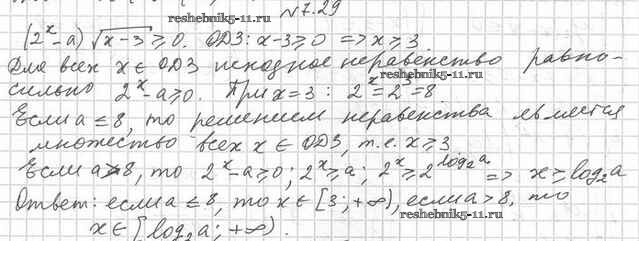 №7.29
reshebnik5-11.ru
(2^x-a)√(x-3)≥0. ОДЗ: x-3≥0 => x≥3
Для всех x∈ОДЗ исходное неравенство равно-
сильно 2^x-a≥0. При x=3: 2^x=2^3=8
Если a≤8, то решением неравенства является
множество всех x∈ОДЗ, т.е. x≥3
Если a>8, то 2^x-a≥0; 2^x≥a; 2^x≥2^{log₂a} => x≥log₂a
Ответ: если a≤8, то x∈[3;+∞), если a>8, то
reshebnik5-11.ru
x∈[log₂a;+∞).